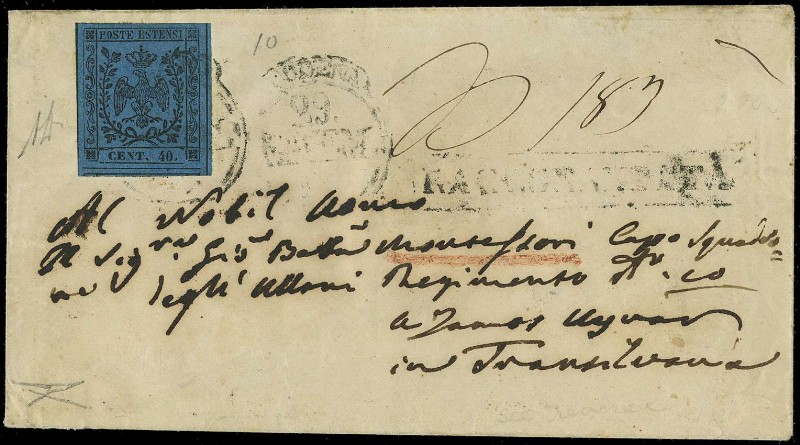 POSTE ESTENSI
CENT. 40.
10
MODENA
29.
N° 183
RACCOMANDATA
Al Nobil Uomo
Il Sig.r Gio. Batta Montessori Capo Squadro=
ne degli Ullani Regimento N.ro 10
a Zamos Uyvar
in Transilvania